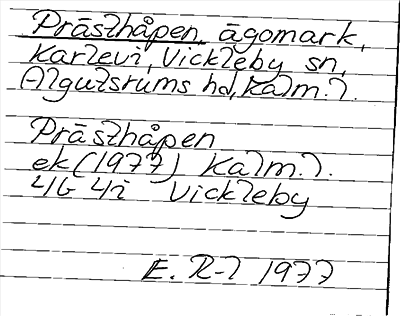 Prästhåpen ägomark,
Karlevi, Vickleby sn,
Algutsrums hd, Kalm. l.
Prästhåpen
ek (1977) Kalm. l.
4G 4i Vickleby
E. R-l 1977